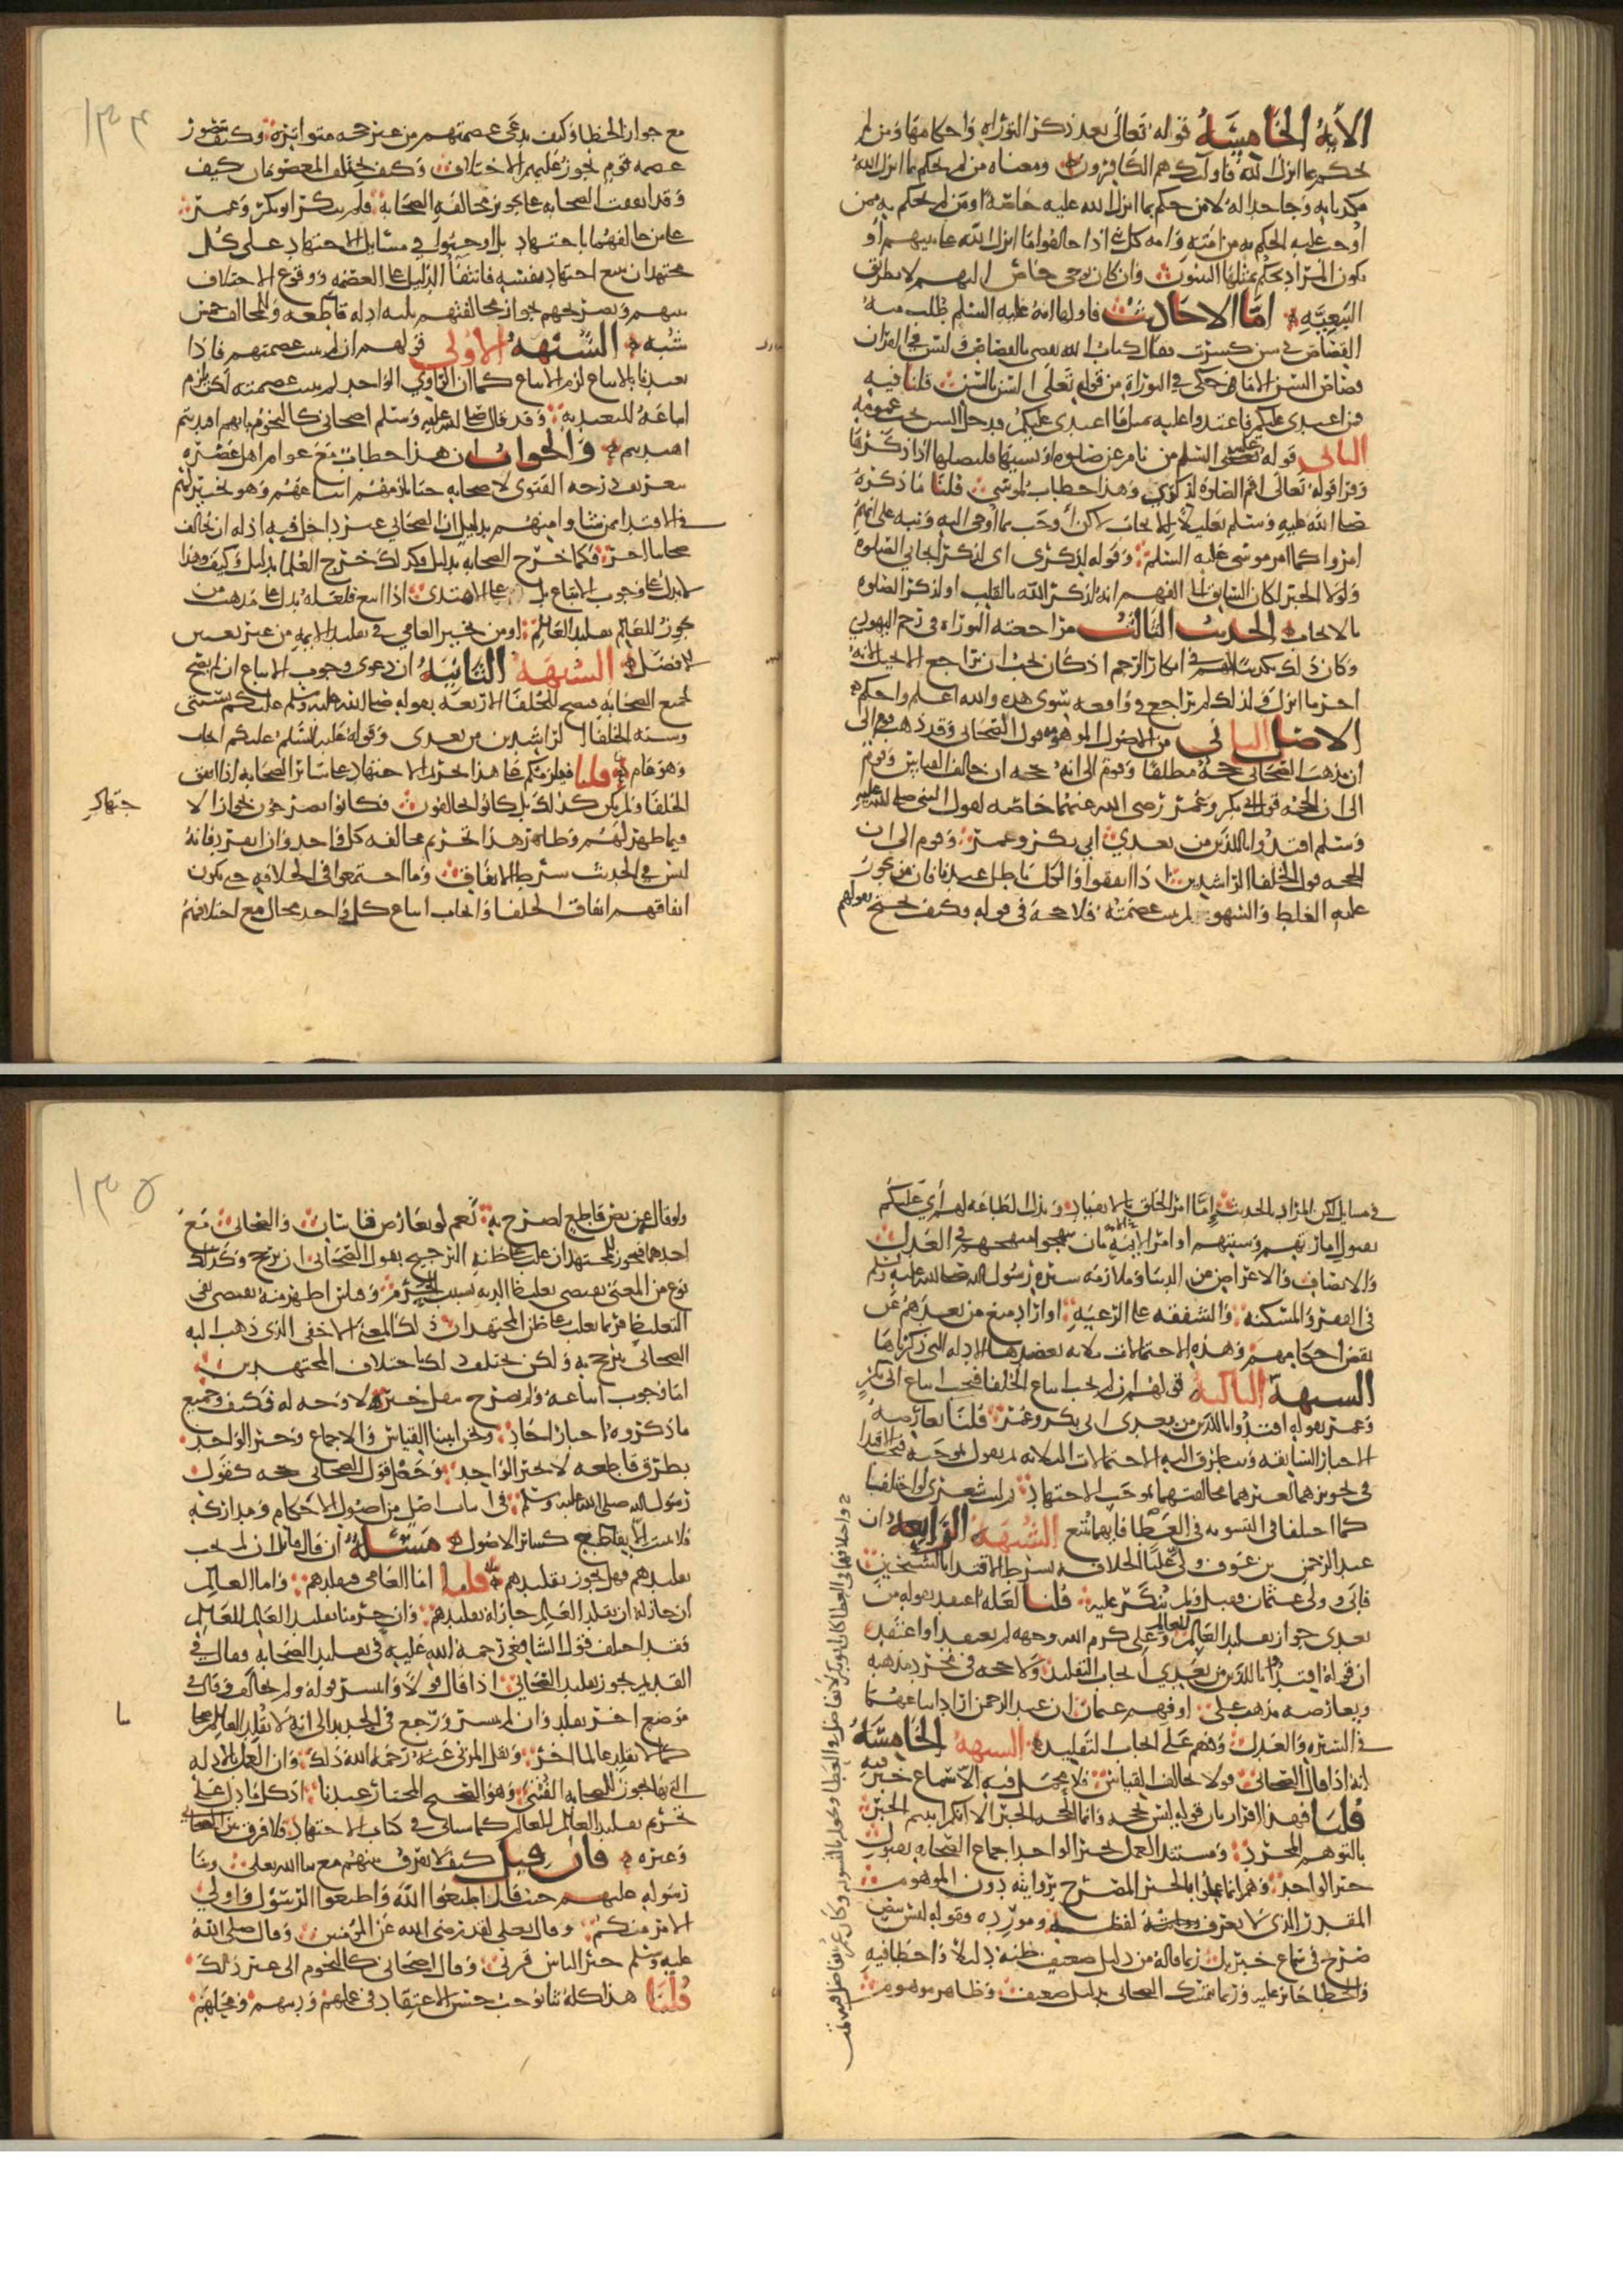 الآية الخامسة قوله تعالى بعد ذكر التوراة واحكامها ومن لم
يحكم بما انزل الله فاولئك هم الكافرون ومعناه من لم يحكم بما انزل الله
مكذبا به وجاحدا له لا من حكم بما انزل الله عليه خاصة او من لم يحكم به ممن
اوجب عليه الحكم به من امته وامة كل نبي اذا خالفوا ما انزل الله على نبيهم او
يكون المراد يحكم بمثلها النبيون وان كان بوحي خاص اليهم لا بطريق
التبعية اما الاحاديث فاولها انه عليه السلم طلب منه
القصاص في سن كسرت فقال كتاب الله يقضي بالقصاص وليس في القران
قصاص السن الا ما حكى في التوراة من قوله تعالى السن بالسن قلنا فيه
فمن اعتدى عليكم فاعتدوا عليه بمثل ما اعتدى عليكم فدخل السن تحت عمومه
الثاني قوله عليه السلم من نام عن صلوة او نسيها فليصلها اذا ذكرها
وقرا قوله تعالى اقم الصلوة لذكري وهذا خطاب لموسى قلنا ما ذكره
صلى الله عليه وسلم تعليلا للايجاب لكن اوجب بما اوحي اليه ونبه على انهم
امروا كما امر موسى عليه السلم وقوله لذكري اي لذكر ايجابي الصلوة
ولولا الخبر لكان السابق الى الفهم انه لذكر الله بالقلب او لذكر الصلوة
بالايجاب الحديث الثالث مراجعته التوراة في رجم اليهودي
وكان ذلك تكذيبا لهم في انكار الرجم اذ كان يجب ان يراجع الانجيل فانه
اخر ما انزل فلذلك لم يراجع في واقعة سوى هذه والله اعلم واحكم
الاصل الثاني من الاصول الموهومة قول الصحابي وقد ذهب قوم الى
ان مذهب الصحابي حجة مطلقا وقوم الى انه حجة ان خالف القياس وقوم
الى ان الحجة قول ابي بكر وعمر رضي الله عنهما خاصة لقول النبي صلى الله عليه
وسلم اقتدوا باللذين من بعدي ابي بكر وعمر وقوم الى ان
الحجة قول الخلفا الراشدين اذا اتفقوا والكل باطل عندنا فان من يجوز
عليه الغلط والسهو ولم يثبت عصمته فلا حجة في قوله وكيف يحتج بقولهم
مع جواز الخطا وكيف يدعى عصمتهم من غير حجة متواترة وكيف يتصور
عصمة قوم يجوز عليهم الاختلاف وكيف يختلف المعصومان كيف
وقد اتفقت الصحابة على تجويز مخالفة الصحابة فلم ينكر ابو بكر وعمر
على من خالفهما بالاجتهاد بل اوجبوا في مسايل الاجتهاد على كل
مجتهد ان يتبع اجتهاد نفسه فانتفا الدليل على العصمة ووقوع الاختلاف
بينهم وتصريحهم بجواز مخالفتهم ثلثة ادلة قاطعة وللمخالف خمس
شبه الشبهة الاولى قولهم ان لم يثبت عصمتهم فاذا
تعبدنا بالاتباع لزم الاتباع كما ان الراوي الواحد لم يثبت عصمته لكن يلزم
اتباعه للتعبد به وقد قال صلى الله عليه وسلم اصحابي كالنجوم بايهم اقتديتم
اهتديتم والجواب ان هذا خطاب مع عوام اهل عصره
بتعريف درجة الفتوى لاصحابه حتى يلزمهم اتباعهم وهو تخييرلهم
في الاقتدا بمن شاوا منهم بدليل ان الصحابي غير داخل فيه اذ له ان يخالف
صحابيا اخر فكما خرج الصحابة بدليل فكذلك خرج العلما بدليل وكيف وهذا
لا يدل على وجوب الاتباع بل على الاهتدى اذا اتبع فلعله يدل على مذهب من
يجوز للعالم تقليد العالم او من يخير العامي في تقليد الايمة من غير تعيين
الافضل الشبهة الثانية ان دعوى وجوب الاتباع ان لم تصح
لجميع الصحابة فيصح للخلفا الاربعة بقوله صلى الله عليه وسلم عليكم بسنتي
وسنة الخلفا الراشدين من بعدي وقوله عليه السلم عليكم ايجاب
وهو عام قلنا فيلزمكم على هذا تحريم الاجتهاد على سائر الصحابة اذا اتفق
الخلفا ولم يكن كذلك بل كانوا يخالفون فكانوا يصرحون بجواز الا
جتهاد
فيما ظهر لهم وظاهر هذا تحريم مخالفة كل واحد وان انفرد فانه
ليس في الحديث شرط الاتفاق وما اجتمعوا في الخلافة حتى يكون
اتفاقهم اتفاق الخلفا وايجاب اتباع كل واحد محال مع اختلافهم
في مسايل لكن المراد بالحديث اما امر الخلق بالانقياد وبذل الطاعة لهم اي عليكم
بقبول امارتهم وسنتهم او امر الامة بان ينهجوا منهجهم في العدل
والانصاف والاعراض عن الدنيا وملازمة سيرة رسول الله صلى الله عليه وسلم
في الفقر والمسكنة والشفقة على الرعية او اراد منع من بعدهم عن
نقض احكامهم وهذه الاحتمالات ثلاثة تعضدها الادلة التي ذكرناها
الشبهة الثالثة قولهم ان لم يجب اتباع الخلفا فيجب اتباع ابي بكر
وعمر بقوله اقتدوا باللذين من بعدي ابي بكر وعمر قلنا تعارضه
الاخبار السابقة ويتطرق اليه الاحتمالات الثلاثة ثم نقول بموجبه فيجب الاقتدا
في تجويزهما لغيرهما مخالفتهما بموجب الاجتهاد ثم ليت شعري لو اختلفا
كما اختلفا في التسوية في العطا فايهما نتبع الشبهة الرابعة ان
عبد الرحمن بن عوف ولى عليا الخلافة بشرط الاقتدا بالشيخين
فابى وولى عثمان فقبل ولم ينكر عليه قلنا لعله اعتقد بقوله من
بعدي جواز تقليد العالم للعالم وعلي كرم الله وجهه لم يعتقد او اعتقد
ان قوله اقتدوا باللذين من بعدي ايجاب التقليد ولا حجة في مجرد مذهبه
ويعارضه مذهب علي او فهم عثمان ان عبد الرحمن اراد اتباعهما
في السيرة والعدل وفهم علي ايجاب التقليد الشبهة الخامسة
انه اذا قال الصحابي قولا يخالف القياس فلا محمل فيه الا سماع خبر فيه
قلنا فهذا اقرار بان قوله ليس بحجة وانما الحجة الخبر الا انكم اثبتم الخبر
بالتوهم المجرد ومستند العمل بخبر الواحد اجماع الصحابة بقبول
خبر الواحد وهم انما عملوا بالخبر المصرح بروايته دون الموهوم
المقدر الذي لا يعرف لفظه ومورده وقوله ليس بنص
صريح في سماع خبر بل ربما قاله من دليل ضعيف ظنه دليلا واخطا فيه
والخطا جائز عليه وربما تمسك الصحابي بدليل ضعيف وظاهر موهوم
ولو قاله عن نص قاطع لصرح به نعم لو تعارض قياسان والصحابي مع
احدهما فيجوز للمجتهد ان غلب على ظنه الترجيح بقول الصحابي ان يرجح وكذلك
نوع من المعنى يقتضي تغليظ الدية بسبب الجرم وقياس اظهر منه يقتضي نفي
التغليظ فربما يغلب على ظن المجتهد ان ذلك المعنى الاخفى الذي ذهب اليه
الصحابي يترجح به ولكن يختلف ذلك باختلاف المجتهدين
اما وجوب اتباعه ولم يصرح بنقل خبر فلا وجه له فكيف وجميع
ما ذكروه اخبار احاد ونحن اثبتنا القياس والاجماع وخبر الواحد
بطرق قاطعة لا بخبر الواحد وجعل قول الصحابي حجة كقول
رسول الله صلى الله عليه وسلم في اثبات اصل من اصول الاحكام ومداركه
فلا يثبت الا بقاطع كسائر الاصول مسئلة ان قال قائل ان لم يجب
تقليدهم فهل يجوز تقليدهم قلنا اما العامي فيقلدهم واما العالم
ان جاز له ان يقلد العالم جاز له تقليدهم وان حرمنا تقليد العالم للعالم
فقد اختلف قول الشافعي رحمة الله عليه في تقليد الصحابة فقال في
القديم يجوز تقليد الصحابي اذا قال قولا وانتشر قوله ولم يخالف وقال في
موضع اخر يقلد وان لم ينتشر ورجع في الجديد الى انه لا يقلد العالم صحابيا
كما لا يقلد عالما اخر ونقل المزني عنه رحمه الله ذلك وان العمل بالادلة
التي بها يجوز للصحابة الفتوى وهو الصحيح المختار عندنا اذ كل ما دل على
تحريم تقليد العالم للعالم كما سياتي في كتاب الاجتهاد لا فرق بين الصحابي
وغيره فان قيل كيف لا يفرق بينهم مع ثنا الله تعالى وثنا
رسوله عليهم حيث قال اطيعوا الله واطيعوا الرسول واولي
الامر منكم وقال تعالى لقد رضي الله عن المؤمنين وقال صلى الله
عليه وسلم خير الناس قرني وقال اصحابي كالنجوم الى غير ذلك
قلنا هذا كله ثنا يوجب حسن الاعتقاد في عملهم ودينهم ومحلهم